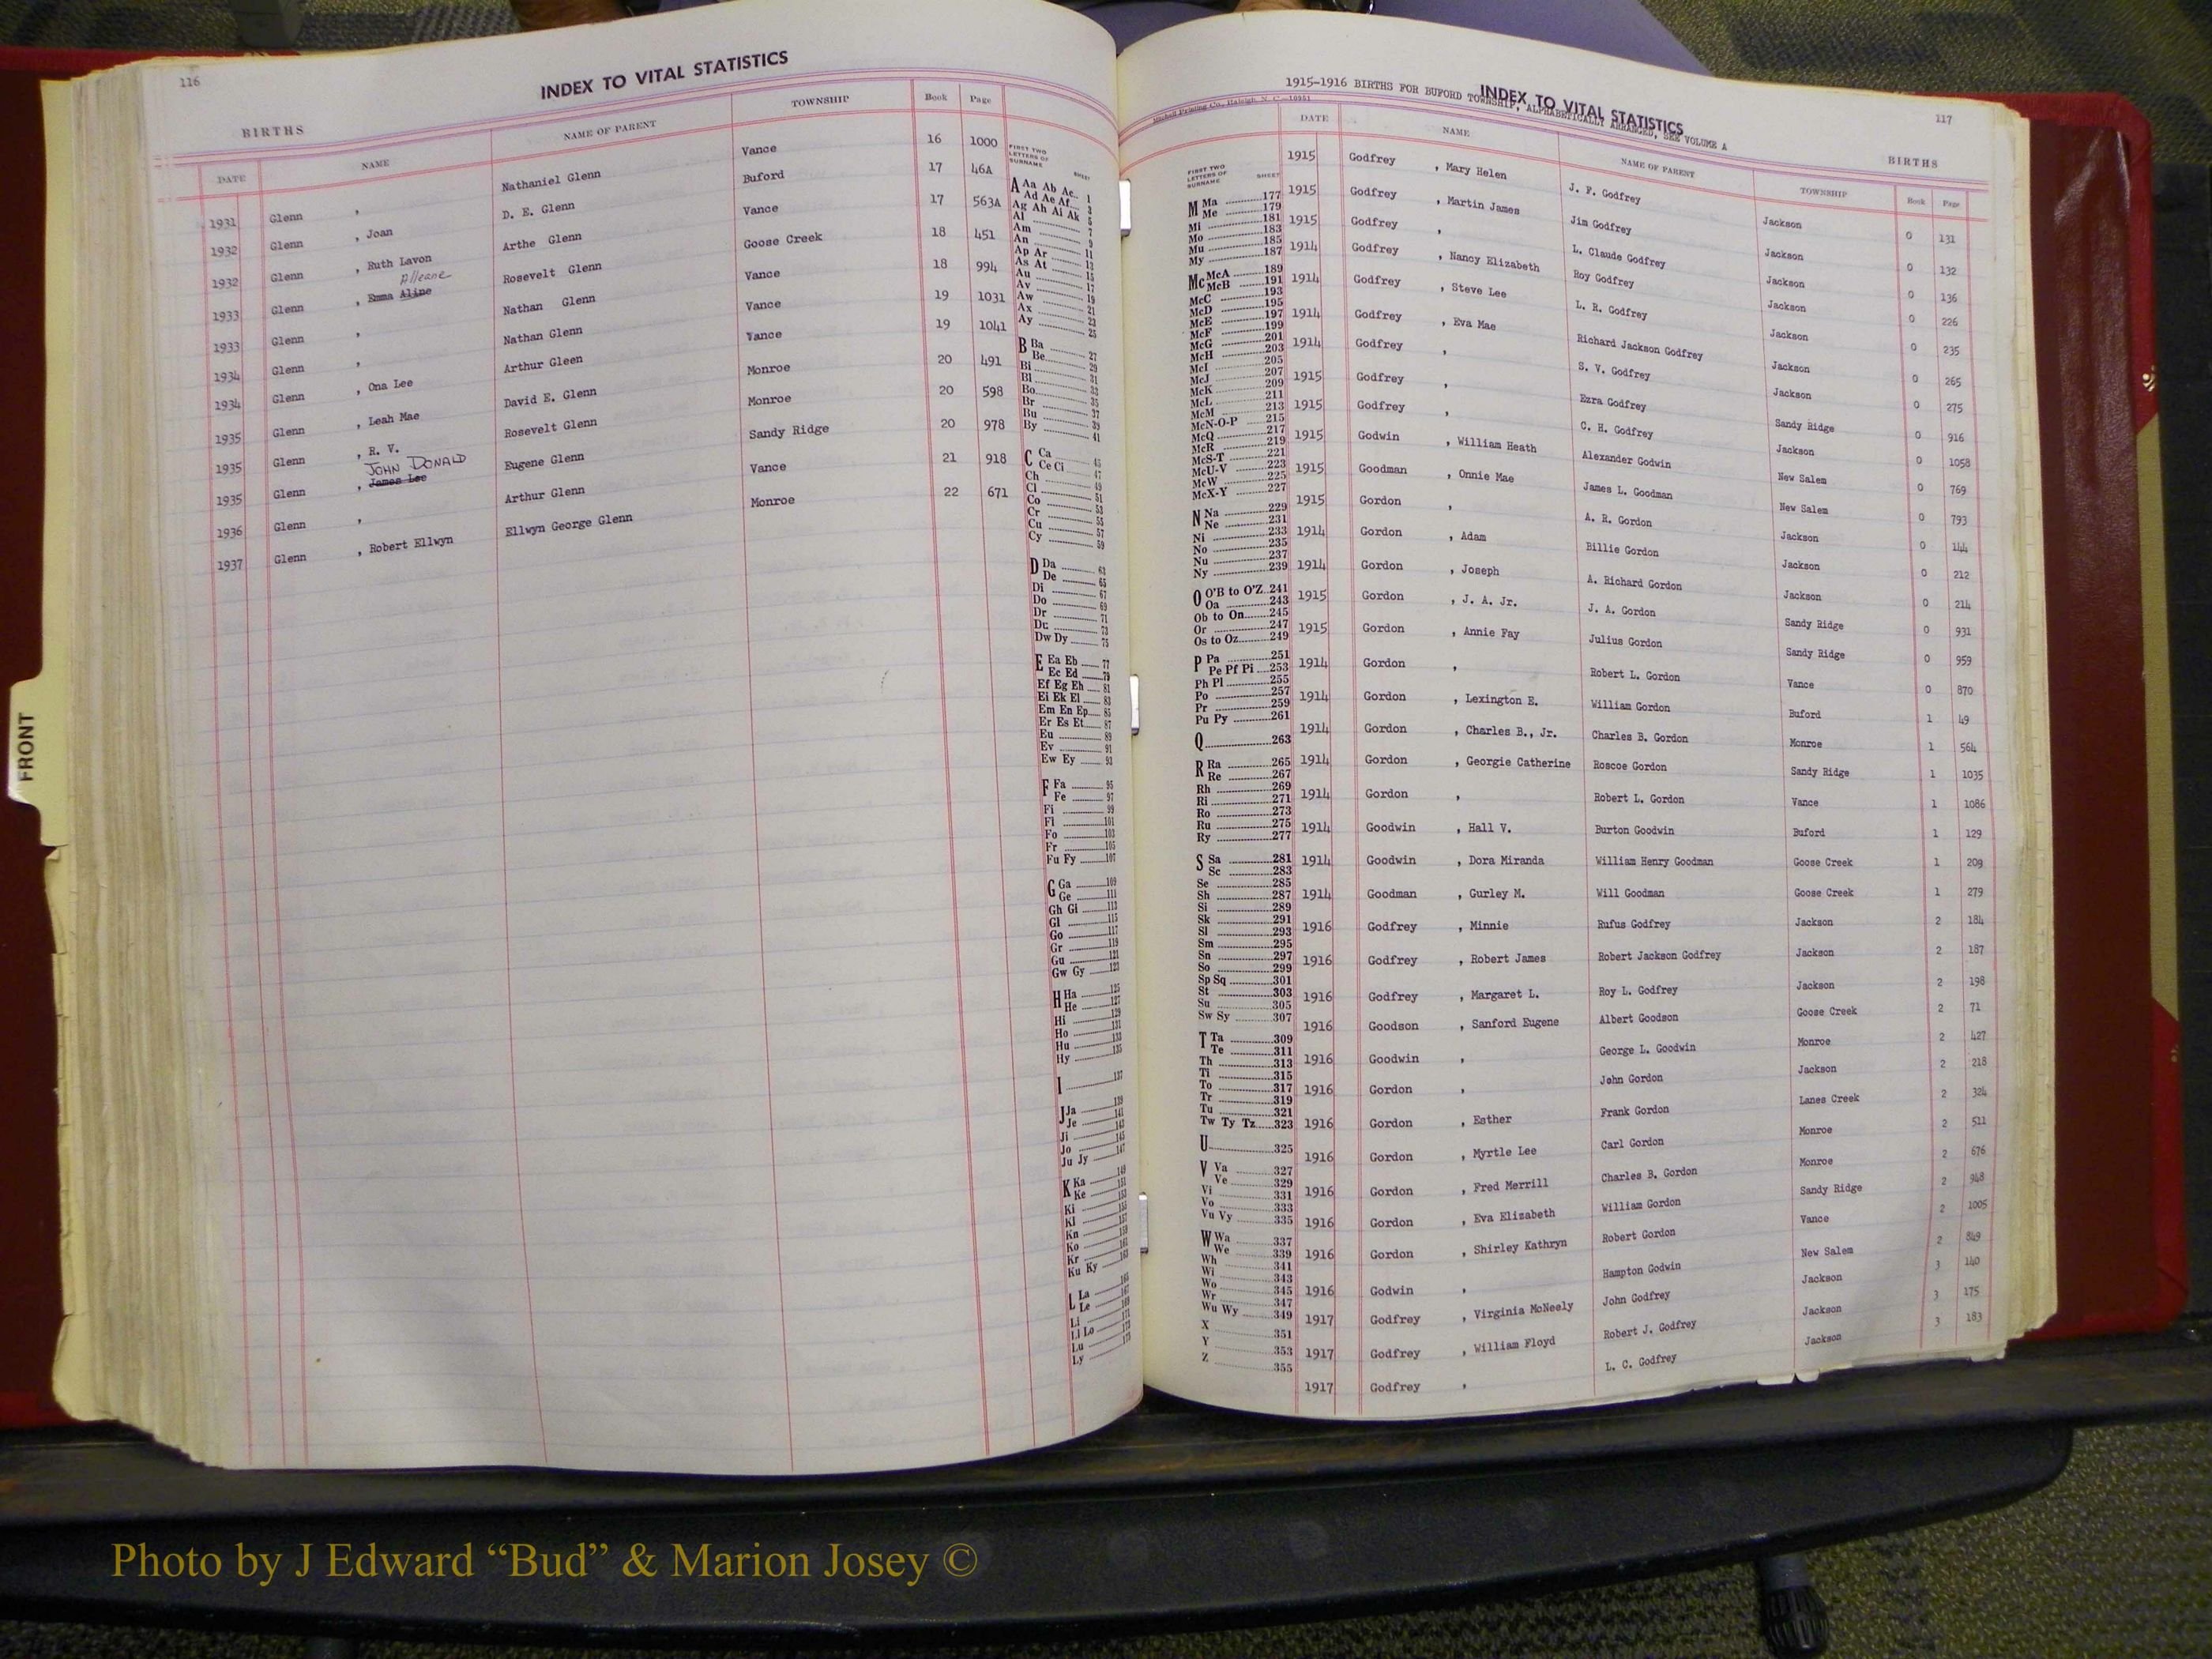 116
INDEX TO VITAL STATISTICS
BIRTHS
DATE NAME NAME OF PARENT TOWNSHIP Book Page
1931 Glenn , Nathaniel Glenn Vance 16 1000
1932 Glenn , Joan D. E. Glenn Buford 17 46A
1932 Glenn , Ruth Lavon Arthe Glenn Vance 17 563A
Alleane
1933 Glenn , Emma Aline Rosevelt Glenn Goose Creek 18 451
1933 Glenn , Nathan Glenn Vance 18 994
1934 Glenn , Nathan Glenn Vance 19 1031
1934 Glenn , Ona Lee Arthur Gleen Vance 19 1041
1935 Glenn , Leah Mae David E. Glenn Monroe 20 491
1935 Glenn , R. V. Rosevelt Glenn Monroe 20 598
JOHN DONALD
1935 Glenn , James Lee Eugene Glenn Sandy Ridge 20 978
1936 Glenn , Arthur Glenn Vance 21 918
1937 Glenn , Robert Ellwyn Ellwyn George Glenn Monroe 22 671
FIRST TWO LETTERS OF SURNAME SHEET
A Aa Ab Ac 1
Ad Ae Af 3
Ag Ah Ai Ak 5
Al 7
Am 9
An 11
Ap Ar 13
As At 15
Au 17
Av 19
Aw 21
Ax 23
Ay 25
B Ba 27
Be 29
Bi 31
Bl 33
Bo 35
Br 37
Bu 39
By 41
C Ca 45
Ce Ci 47
Ch 49
Cl 51
Co 53
Cr 55
Cu 57
Cy 59
D Da 63
De 65
Di 67
Do 69
Dr 71
Du 73
Dw Dy 75
E Ea Eb 77
Ec Ed 79
Ef Eg Eh 81
Ei Ek El 83
Em En Ep 85
Er Es Et 87
Eu 89
Ev 91
Ew Ey 93
F Fa 95
Fe 97
Fi 99
Fl 101
Fo 103
Fr 105
Fu Fy 107
G Ga 109
Ge 111
Gh Gi 113
Gl 115
Go 117
Gr 119
Gu 121
Gw Gy 123
H Ha 125
He 127
Hi 129
Ho 131
Hu 133
Hy 135
I 137
J Ja 139
Je 141
Ji 143
Jo 145
Ju Jy 147
K Ka 149
Ke 151
Ki 153
Kl 155
Kn 157
Ko 159
Kr 161
Ku Ky 163
L La 165
Le 167
Li 169
Ll Lo 171
Lu 173
Ly 175
FRONT
1915-1916 BIRTHS FOR BUFORD TOWNSHIP, ALPHABETICALLY ARRANGED, SEE VOLUME A
INDEX TO VITAL STATISTICS
117
Mitchell Printing Co., Raleigh, N. C.—10951
BIRTHS
DATE NAME NAME OF PARENT TOWNSHIP Book Page
FIRST TWO LETTERS OF SURNAME SHEET
M Ma 177
Me 179
Mi 181
Mo 183
Mu 185
My 187
Mc McA 189
McB 191
McC 193
McD 195
McE 197
McF 199
McG 201
McH 203
McI 205
McJ 207
McK 209
McL 211
McM 213
McN-O-P 215
McQ 217
McR 219
McS-T 221
McU-V 223
McW 225
McX-Y 227
N Na 229
Ne 231
Ni 233
No 235
Nu 237
Ny 239
O O'B to O'Z 241
Oa 243
Ob to On 245
Or 247
Os to Oz 249
P Pa 251
Pe Pf Pi 253
Ph Pl 255
Po 257
Pr 259
Pu Py 261
Q 263
R Ra 265
Re 267
Rh 269
Ri 271
Ro 273
Ru 275
Ry 277
S Sa 281
Sc 283
Se 285
Sh 287
Si 289
Sk 291
Sl 293
Sm 295
Sn 297
So 299
Sp Sq 301
St 303
Su 305
Sw Sy 307
T Ta 309
Te 311
Th 313
Ti 315
To 317
Tr 319
Tu 321
Tw Ty Tz 323
U 325
V Va 327
Ve 329
Vi 331
Vo 333
Vu Vy 335
W Wa 337
We 339
Wh 341
Wi 343
Wo 345
Wr 347
Wu Wy 349
X 351
Y 353
Z 355
1915 Godfrey , Mary Helen J. F. Godfrey Jackson 0 131
1915 Godfrey , Martin James Jim Godfrey Jackson 0 132
1915 Godfrey , L. Claude Godfrey Jackson 0 136
1914 Godfrey , Nancy Elizabeth Roy Godfrey Jackson 0 226
1914 Godfrey , Steve Lee L. R. Godfrey Jackson 0 235
1914 Godfrey , Eva Mae Richard Jackson Godfrey Jackson 0 265
1914 Godfrey , S. V. Godfrey Jackson 0 275
1915 Godfrey , Ezra Godfrey Sandy Ridge 0 916
1915 Godfrey , C. H. Godfrey Jackson 0 1058
1915 Godwin , William Heath Alexander Godwin New Salem 0 769
1915 Goodman , Onnie Mae James L. Goodman New Salem 0 793
1915 Gordon , A. R. Gordon Jackson 0 144
1914 Gordon , Adam Billie Gordon Jackson 0 212
1914 Gordon , Joseph A. Richard Gordon Jackson 0 214
1915 Gordon , J. A. Jr. J. A. Gordon Sandy Ridge 0 931
1915 Gordon , Annie Fay Julius Gordon Sandy Ridge 0 959
1914 Gordon , Robert L. Gordon Vance 0 870
1914 Gordon , Lexington E. William Gordon Buford 1 49
1914 Gordon , Charles B., Jr. Charles B. Gordon Monroe 1 564
1914 Gordon , Georgie Catherine Roscoe Gordon Sandy Ridge 1 1035
1914 Gordon , Robert L. Gordon Vance 1 1086
1914 Goodwin , Hall V. Burton Goodwin Buford 1 129
1914 Goodwin , Dora Miranda William Henry Goodman Goose Creek 1 209
1914 Goodman , Gurley M. Will Goodman Goose Creek 1 279
1916 Godfrey , Minnie Rufus Godfrey Jackson 2 184
1916 Godfrey , Robert James Robert Jackson Godfrey Jackson 2 187
1916 Godfrey , Margaret L. Roy L. Godfrey Jackson 2 198
1916 Goodson , Sanford Eugene Albert Goodson Goose Creek 2 71
1916 Goodwin , George L. Goodwin Monroe 2 427
1916 Gordon , John Gordon Jackson 2 218
1916 Gordon , Esther Frank Gordon Lanes Creek 2 324
1916 Gordon , Myrtle Lee Carl Gordon Monroe 2 511
1916 Gordon , Fred Merrill Charles B. Gordon Monroe 2 676
1916 Gordon , Eva Elizabeth William Gordon Sandy Ridge 2 948
1916 Gordon , Shirley Kathryn Robert Gordon Vance 2 1005
1916 Godwin , Hampton Godwin New Salem 2 849
1917 Godfrey , Virginia McNeely John Godfrey Jackson 3 140
1917 Godfrey , William Floyd Robert J. Godfrey Jackson 3 175
1917 Godfrey , L. C. Godfrey Jackson 3 183
Photo by J Edward “Bud” & Marion Josey ©